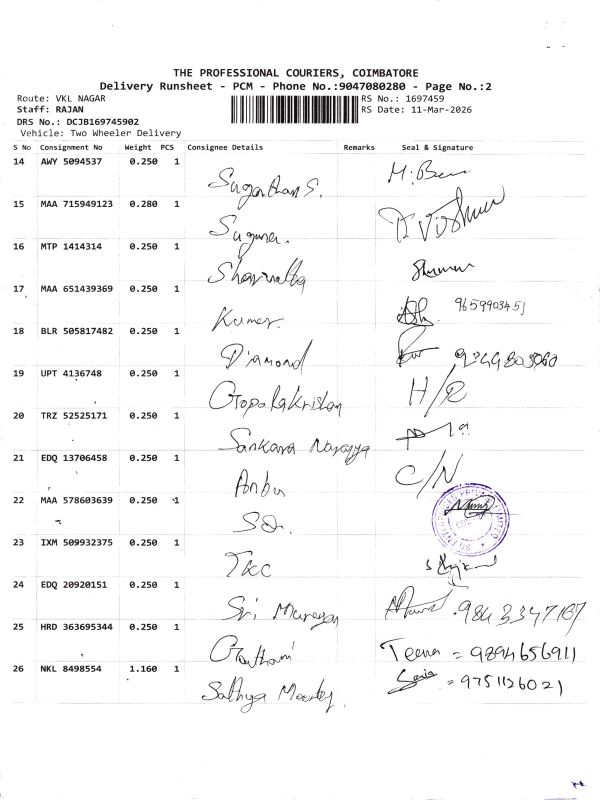 THE PROFESSIONAL COURIERS, COIMBATORE
Delivery Runsheet - PCM - Phone No.:9047080280 - Page No.:2
Route: VKL NAGAR RS No.: 1697459
Staff: RAJAN RS Date: 11-Mar-2026
DRS No.: DCJB169745902
Vehicle: Two Wheeler Delivery
S No Consignment No Weight PCS Consignee Details Remarks Seal & Signature
14 AWY 5094537 0.250 1
Suganthan S.
15 MAA 715949123 0.280 1
Suguna.
16 MTP 1414314 0.250 1
17 MAA 651439369 0.250 1
Kumar. 9659903451
18 BLR 505817482 0.250 1
Diamond
19 UPT 4136748 0.250 1
Gopalakrishan H/R
20 TRZ 52525171 0.250 1
Sankara Narayya
21 EDQ 13706458 0.250 1
Anbu C/N
22 MAA 578603639 0.250 1
23 IXM 509932375 0.250 1
TKC
24 EDQ 20920151 0.250 1
Sri Murugan 9843347167
25 HRD 363695344 0.250 1
Gowthami Teena = 9894656911
26 NKL 8498554 1.160 1
Sathya = 9751126021